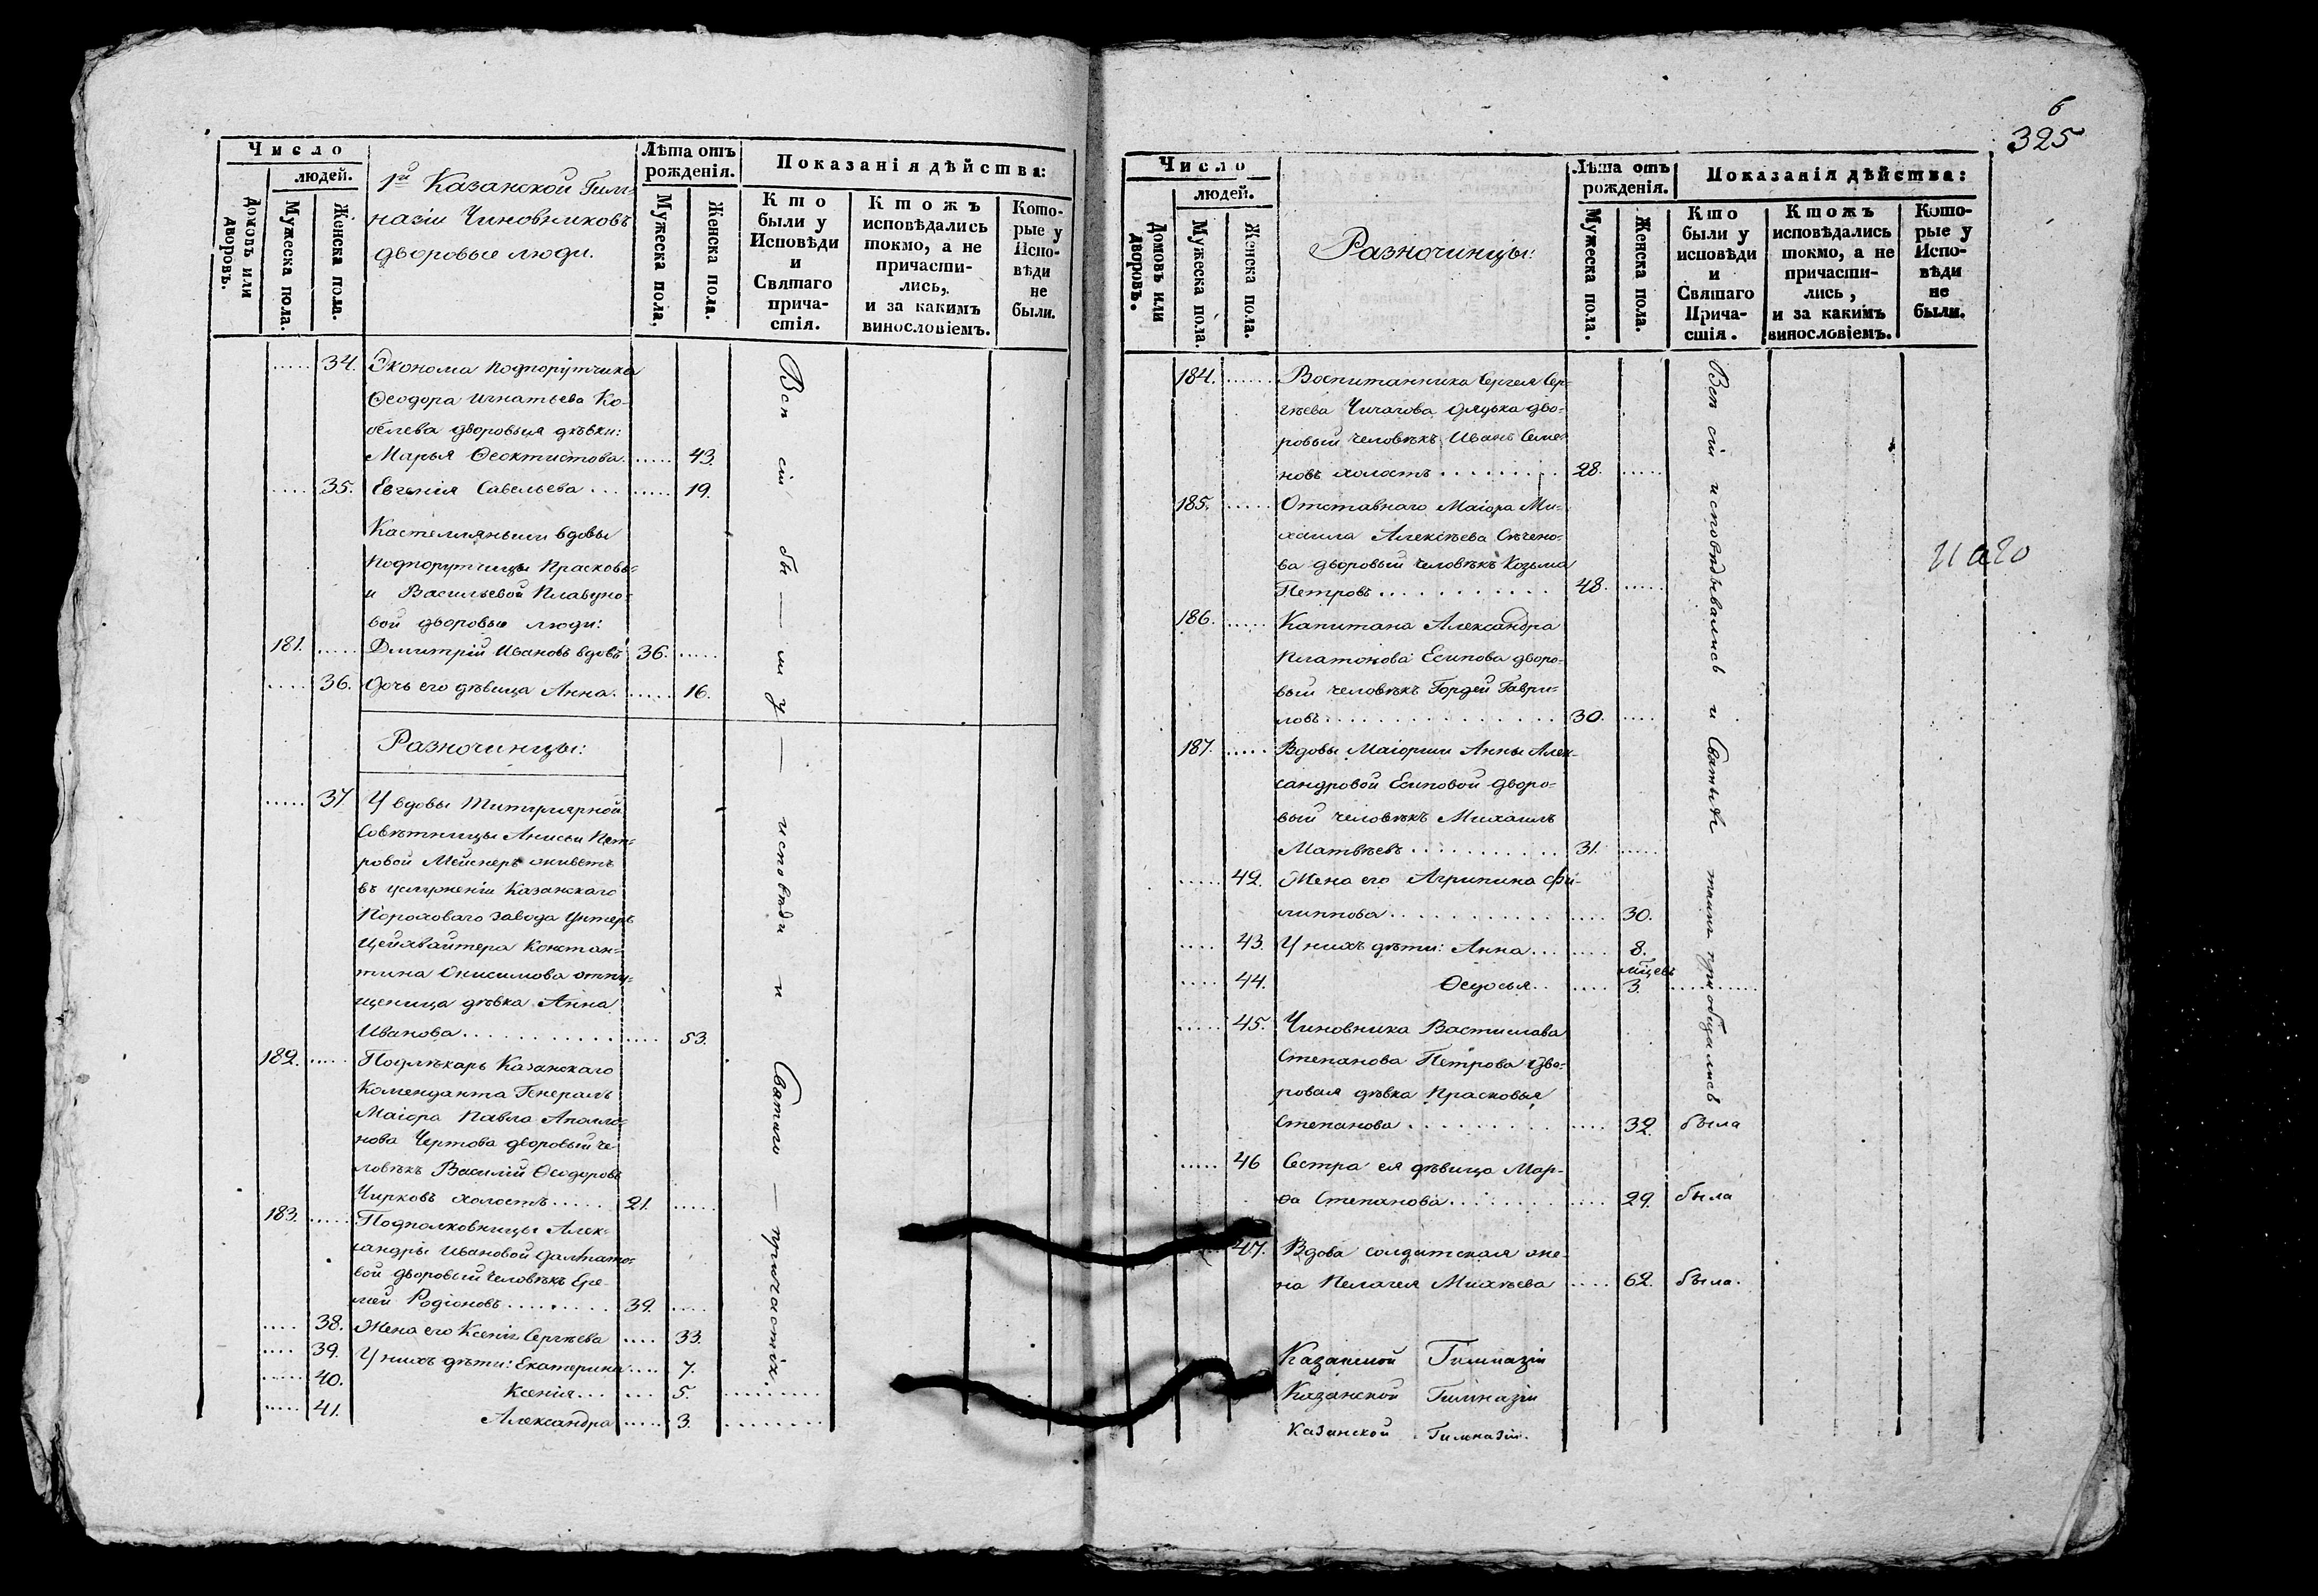 Число
людей.
Домовъ или дворовъ.
Мужеска пола.
Женска пола.
1й Казанской Гим-
назіи Чиновниковъ
дворовые люди.
Лѣта отъ
рожденія.
Мужеска пола,
Женска пола.
Показанія дѣйства:
Кто
были у
Исповѣди
и
Святаго
прича-
стія.
Ктожъ
исповѣдались
токмо, а не
причасти-
лись,
и за какимъ
винословіемъ.
Кото-
рые у
Испо-
вѣди
не
были.
..... 34. Эконома Подпорутчика
Ѳеодора Игнатьева Ко-
белева дворовыя дѣвки:
Марья Ѳеоктистова ..... 43.
..... 35. Евгенія Савельева ... ..... 19.
Кастелянши вдовы
Подпорутчицы Прасковь-
и Васильевой Плавуно-
вой дворовые люди:
181. ..... Дмитрій Ивановъ вдовъ 36. .....
..... 36. Дочь его дѣвица Анна. ..... 16.
Разночинцы:
..... 37 У вдовы Титулярной
Совѣтницы Анисьи Пет-
ровой Мейснеръ живетъ
въ услуженіи Казанскаго
Пороховаго завода Унтеръ
Цейхвайтера Констан-
тина Онисимова отпу-
щеница дѣвка Анна
Иванова ..... 53.
182. ..... Подлѣкарь Казанскаго
Коменданта Генералъ
Маіора Павла Аполло-
нова Чертова дворовый че-
ловѣкъ Василій Ѳеодоровъ
Чирковъ холостъ ..... 21. .....
183. ..... Подполковницы Алек-
сандры Ивановой Далмато-
вой дворовый человѣкъ Ере-
мей Родіоновъ ..... 39. .....
..... 38. Жена его Ксенія Сергѣева ..... 33.
..... 39. У нихъ дѣти: Екатерина ..... 7.
..... 40. Ксенія ... ..... 5. .....
..... 41. Александра ..... 3. .....
Всѣ сіи бы — ли у — исповѣди и Святаго — причастія.
6
325
Число
людей.
Домовъ или дворовъ.
Мужеска пола.
Женска пола.
Разночинцы:
Лѣта отъ
рожденія.
Мужеска пола.
Женска пола.
Показанія дѣйства:
Кто
были у
исповѣди
и
Святаго
Прича-
стія.
Ктожъ
исповѣдались
токмо, а не
причасти-
лись,
и за какимъ
винословіемъ.
Кото-
рые у
Испо-
вѣди
не
были.
184. ..... Воспитанника Сергея Сер-
гѣева Чичагова дядька дво-
ровый человѣкъ Иванъ Семе-
новъ холостъ ..... 28. .....
185. ..... Отставнаго Маіора Ми-
хаила Алексѣева Сѣчено-
ва дворовый человѣкъ Козьма
Петровъ ..... 48. .....
186. ..... Капитана Александра
Платонова Есипова дворо-
вый человѣкъ Гордей Гаври-
ловъ ..... 30. .....
187. ..... Вдовы Маіорши Анны Алек-
сандровой Есиповой дворо-
вый человѣкъ Михаилъ
Матвѣевъ ..... 31. .....
..... 42. Жена его Агрипина Фи-
липпова ..... 30.
..... 43. У нихъ дѣти: Анна ... ..... 8.
мцевъ
..... 44. Ѳедосья .. ..... 3. .....
..... 45. Чиновника Вастислава
Степанова Петрова дво-
ровая дѣвка Прасковья
Степанова ..... 32. была
..... 46 Сестра ея дѣвица Мар-
ѳа Степанова ..... 29. была
47. Вдова солдатская же-
на Пелагея Михѣева ..... 62. была.
Всѣ сіи исповѣдывались и Святыхъ таинъ пріобщались
Казанской Гимназіи
Казанской Гимназіи
Казанской Гимназіи.